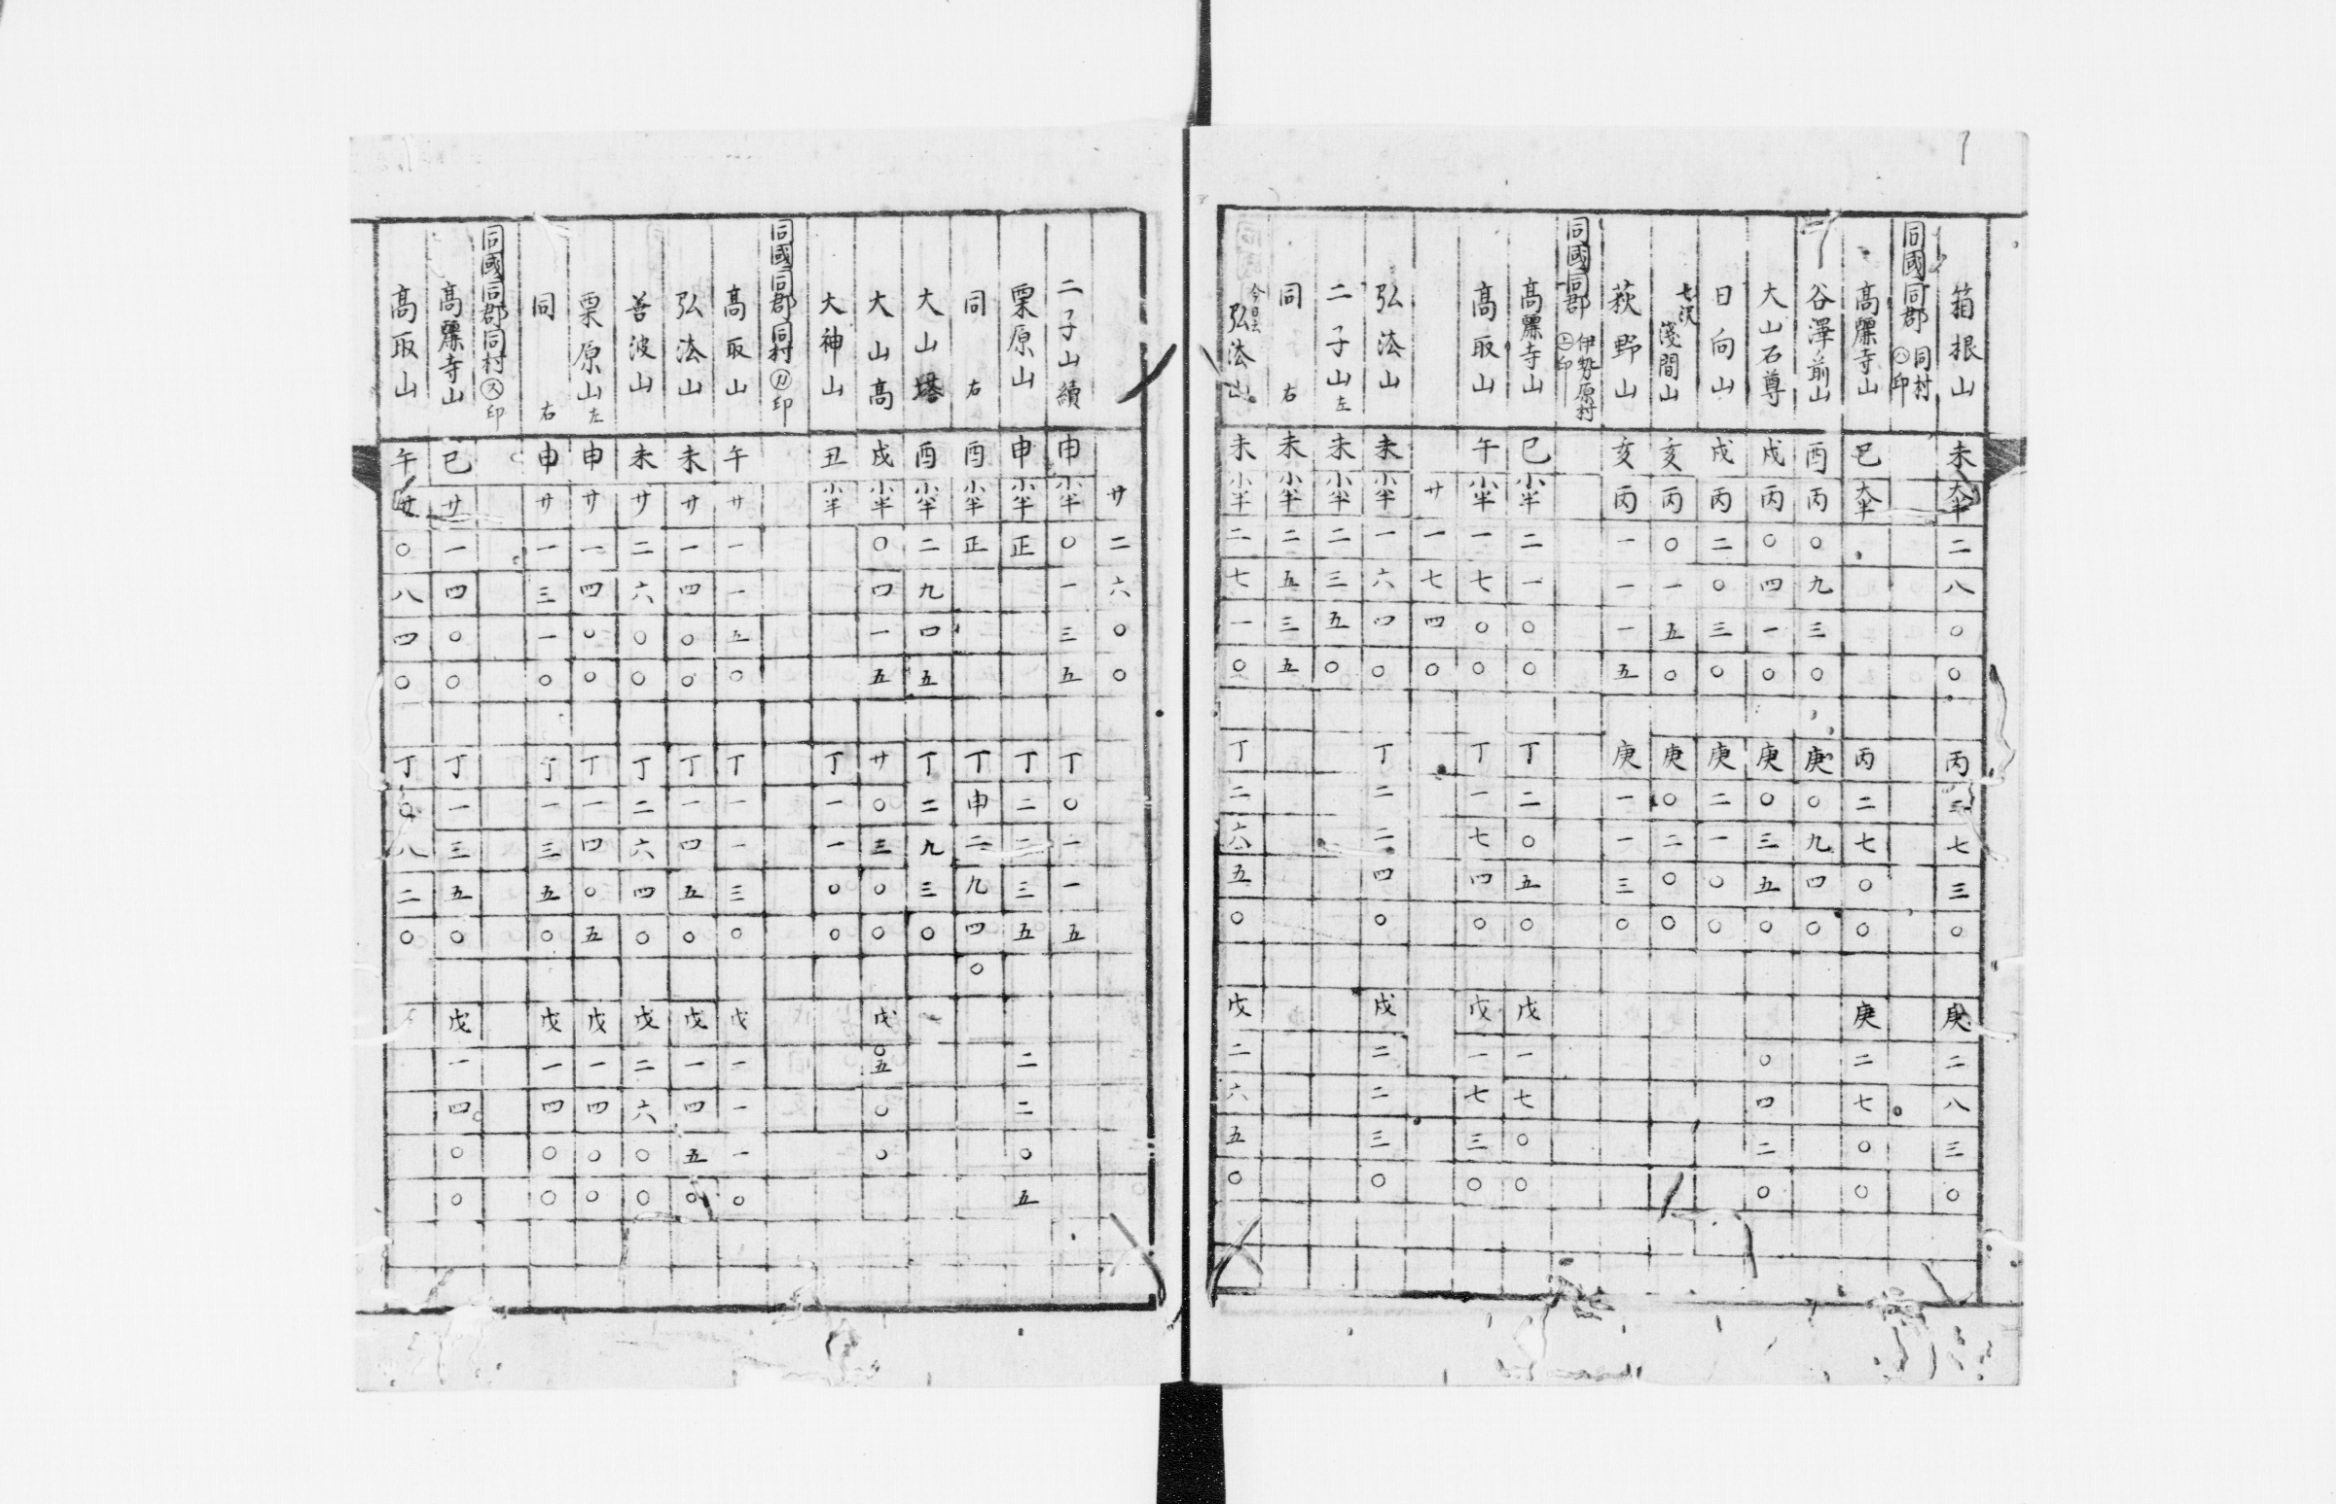 箱根山 未 大半 二八〇〇 丙 二七三〇 庚 二八三〇
同國同郡 同村 ㋩印
高麗寺山 巳 大半 丙 二七〇〇 庚 二七〇〇
谷澤前山 酉 丙 〇九三〇 庚 〇九四〇
大山石尊 戌 丙 〇四一〇 庚 〇三五〇 〇四二〇
日向山 戌 丙 二〇三〇 庚 二一〇〇
七沢 淺間山 亥 丙 〇一五〇 庚 〇二〇〇
荻野山 亥 丙 一一一五 庚 一一三〇
同國同郡 伊勢原村 ㊤印
高麗寺山 巳 小半 二一〇〇 丁 二〇五〇 戊 一七〇〇
高取山 午 小半 一七〇〇 丁 一七四〇 戊 一七三〇
廿 一七四〇
弘法山 未 小半 一六四〇 丁 二二四〇 戊 二二三〇
二子山 左 未 小半 二三五〇
同 右 未 小半 二五三五
今日ハ 弘法山 未 小半 二七一〇 丁 二六五〇 戊 二六五〇
廿 二六〇〇
二子山續 申 小半 〇一三五 丁 〇一一五
栗原山 申 小半 正 丁 二二三五 二二〇五
同 右 酉 小半 正 丁 申 二九四〇
大山塔 酉 小半 二九四五 丁 二九三〇
大山高 戌 小半 〇四一五 廿 〇三〇〇 戊 〇五〇〇
大神山 丑 小半 丁 一一〇〇
同國同郡同村 ㋕印
高取山 午 廿 一一五〇 丁 一一三〇 戊 一一一〇
弘法山 未 廿 一四〇〇 丁 一四五〇 戊 一四五〇
善波山 未 廿 二六〇〇 丁 二六四〇 戊 二六〇〇
栗原山 左 申 廿 一四〇〇 丁 一四〇五 戊 一四〇〇
同 右 申 廿 一三一〇 丁 一三五〇 戊 一四〇〇
同國同郡同村 ㋜印
高麗寺山 巳 廿 一四〇〇 丁 一三五〇 戊 一四〇〇
高取山 午 廿 〇八四〇 丁 〇八二〇